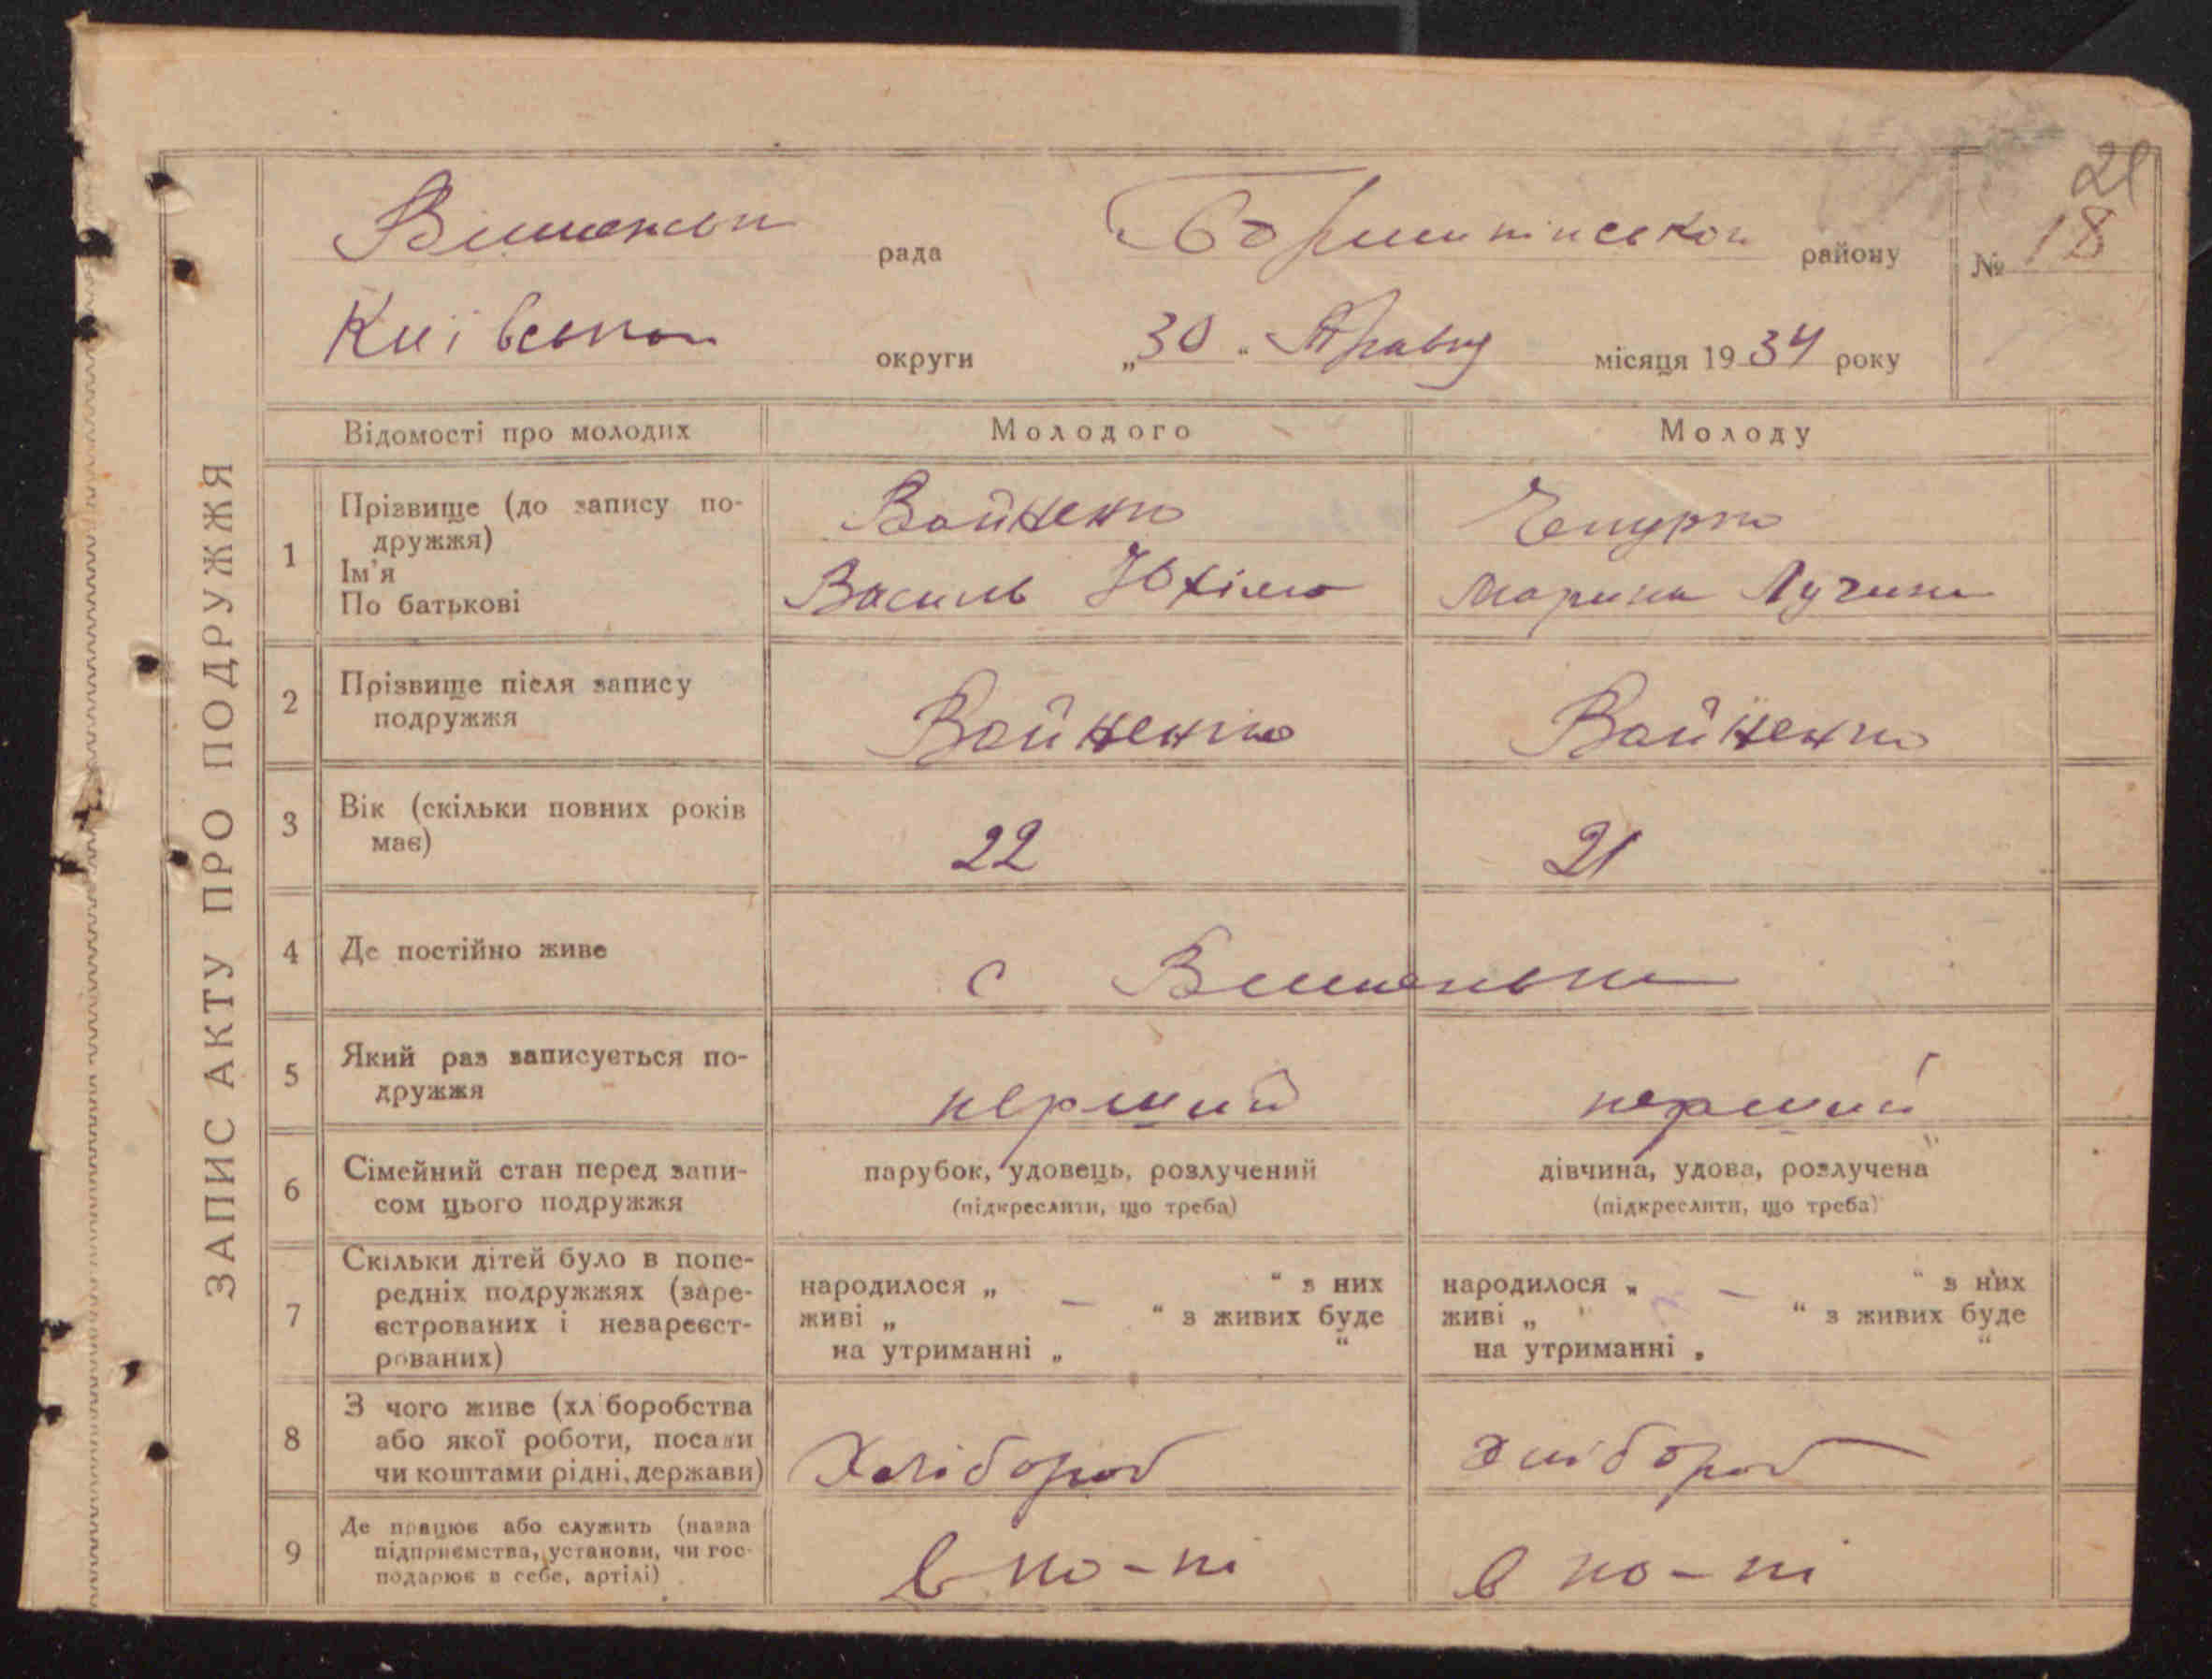 21
ЗАПИС АКТУ ПРО ПОДРУЖЖЯ
рада Бориспінської району № 18
Київської округи „30“ Травня місяця 1934 року
Відомості про молодих Молодого Молоду
1 Прізвище (до запису подружжя) Войненко
Ім'я
По батькові Василь Юхимо Марина Лучина
2 Прізвище після запису подружжя Войненко Войненко
3 Вік (скільки повних років має) 22 21
4 Де постійно живе с Вишеньки
5 Який раз записується подружжя перший перший
6 Сімейний стан перед записом цього подружжя парубок, удовець, розлучений дівчина, удова, розлучена
(підкреслити, що треба) (підкреслити, що треба)
7 Скільки дітей було в попередніх подружжях (зареєстрованих і незареєстрованих)
народилося „ — “ з них народилося „ — “ з них
живі „ “ з живих буде живі „ “ з живих буде
на утриманні „ “ на утриманні „ “
8 З чого живе (хліборобства або якої роботи, посади чи коштами рідні, держави) Хлібороб Хлібороб
9 Де працює або служить (назва підприємства, установи, чи господарює в себе, артілі) в ко-пі в ко-пі